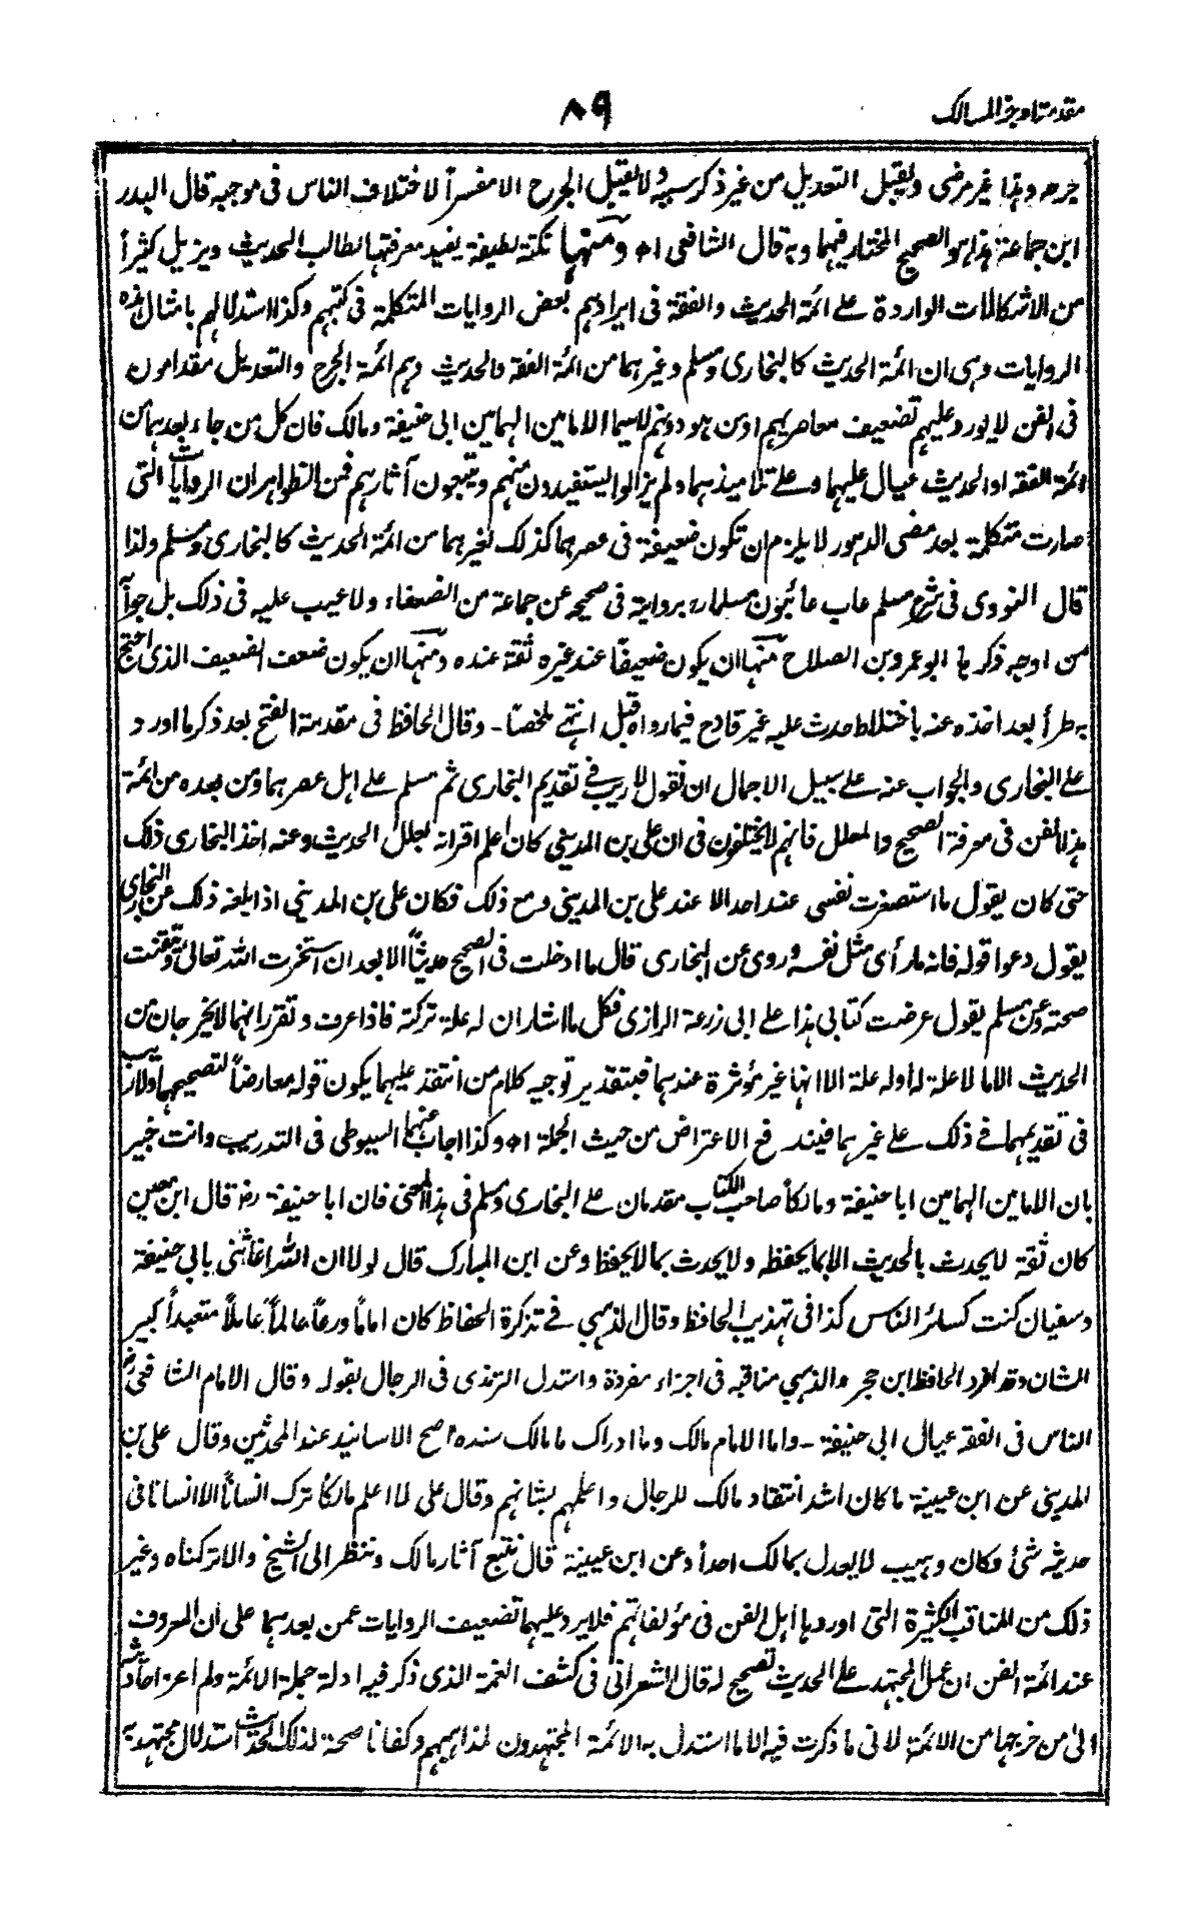 مقدمة اوجز المسالك
٨٩
جرحه وهذا غير مرضى ويقبل التعديل من غير ذكر سببه ولا يقبل الجرح الا مفسراً لاختلاف الناس فى موجبه قال البدر
ابن جماعة هذا هو الصحيح المختار فيهما وبه قال الشافعى اه ومنها نكتة لطيفة يفيد معرفتها لطالب الحديث ويزيل كثيراً
من الاشكالات الواردة على ائمة الحديث والفقه فى ايرادهم بعض الروايات المتكلمة فى كتبهم وكذا استدلالهم بامثال هذه
الروايات وهى ان ائمة الحديث كالبخارى ومسلم وغيرهما من ائمة الفقه والحديث وهم ائمة الجرح والتعديل مقدامون
فى الفن لا يورد عليهم تضعيف معاصريهم او من هو دونهم لاسيما الامامين الهمامين ابى حنيفة ومالك فان كل من جاء بعدهما من
ائمة الفقه او الحديث عيال عليهما وعلى تلاميذهما ولم يزالوا يستفيدون منهم ويتبعون آثارهم فمن الظواهر ان الروايات التى
صارت متكلمة بعد مضى الدهور لا يلزم ان تكون ضعيفة فى عصرهما كذلك لغيرهما من ائمة الحديث كالبخارى ومسلم ولذا
قال النووى فى شرح مسلم عاب عائبون مسلماً بروايته فى صحيحه عن جماعة من الضعفاء ولا عيب عليه فى ذلك بل جوابه
من اوجه ذكرها ابو عمرو بن الصلاح منها ان يكون ضعيفًا عند غيره ثقة عنده ومنها ان يكون ضعف الضعيف الذى احتج
به طرأ بعد اخذه عنه باختلاط حدث عليه غير قادح فيما رواه قبل انتهى ملخصًا - وقال الحافظ فى مقدمة الفتح بعد ذكر ما اورد
على البخارى والجواب عنه على سبيل الاجمال ان نقول لا ريب فى تقديم البخارى ثم مسلم على اهل عصرهما ومن بعده من ائمة
هذا الفن فى معرفة الصحيح والمعلل فانهم لا يختلفون فى ان على بن المدينى كان اعلم اقرانه بعلل الحديث وعنه اخذ البخارى ذلك
حتى كان يقول ما استصغرت نفسى عند احد الا عند على بن المدينى ومع ذلك فكان على بن المدينى اذا بلغه ذلك عن البخارى
يقول دعوا قوله فانه ما رأى مثل نفسه وروى عن البخارى قال ما ادخلت فى الصحيح حديثاً الا بعد ان استخرت الله تعالى وتيقنت
صحته وعن مسلم يقول عرضت كتابى هذا على ابى زرعة الرازى فكل ما اشار ان له علة تركته فاذا عرف وتقرر انهما لا يخرجان من
الحديث الا ما لا علة له او له علة الا انها غير مؤثرة عندهما فبتقدير توجيه كلام من انتقد عليهما يكون قوله معارضاً لتصحيحهما ولا ريب
فى تقديمهما فى ذلك على غيرهما فيندفع الاعتراض من حيث الجملة اه وكذا اجاب عنهما السيوطى فى التدريب وانت خبير
بان الامامين الهمامين ابا حنيفة ومالكاً صاحب الكتاب مقدمان على البخارى ومسلم فى هذا المعنى فان ابا حنيفة رض قال ابن معين
كان ثقة لا يحدث بالحديث الا بما يحفظ ولا يحدث بما لا يحفظ وعن ابن المبارك قال لولا ان الله اغاثنى بابى حنيفة
وسفيان كنت كسائر الناس كذا فى تهذيب الحافظ وقال الذهبى فى تذكرة الحفاظ كان اماماً ورعاً عالماً عاملاً متعبداً كبير
الشان وقد افرد الحافظ ابن حجر والذهبى مناقبه فى اجزاء مفردة واستدل الترمذى فى الرجال بقوله وقال الامام الشافعى رض
الناس فى الفقه عيال ابى حنيفة - واما الامام مالك وما ادراك ما مالك سنده اصح الاسانيد عند المحدثين وقال على بن
المدينى عن ابن عيينة ما كان اشد انتقاد مالك للرجال واعلمهم بشانهم وقال على لا اعلم مالكا ترك انساناً الا انسانا فى
حديثه شئ وكان وهيب لا يعدل بمالك احداً وعن ابن عيينة قال نتبع آثار مالك وننظر الى الشيخ والا تركناه وغير
ذلك من المناقب الكثيرة التى اوردها اهل الفن فى مؤلفاتهم فلا يرد عليهما تضعيف الروايات عمن بعدهما على ان المعروف
عند ائمة الفن ان عمل المجتهد على الحديث تصحيح له قال الشعرانى فى كشف الغمة الذى ذكر فيه ادلة جملة الائمة ولم اعز احاديثه
الى من خرجها من الائمة لانى ما ذكرت فيه الا ما استدل به الائمة المجتهدون لمذاهبهم وكفانا صحة لذلك الحديث استدلال مجتهد به